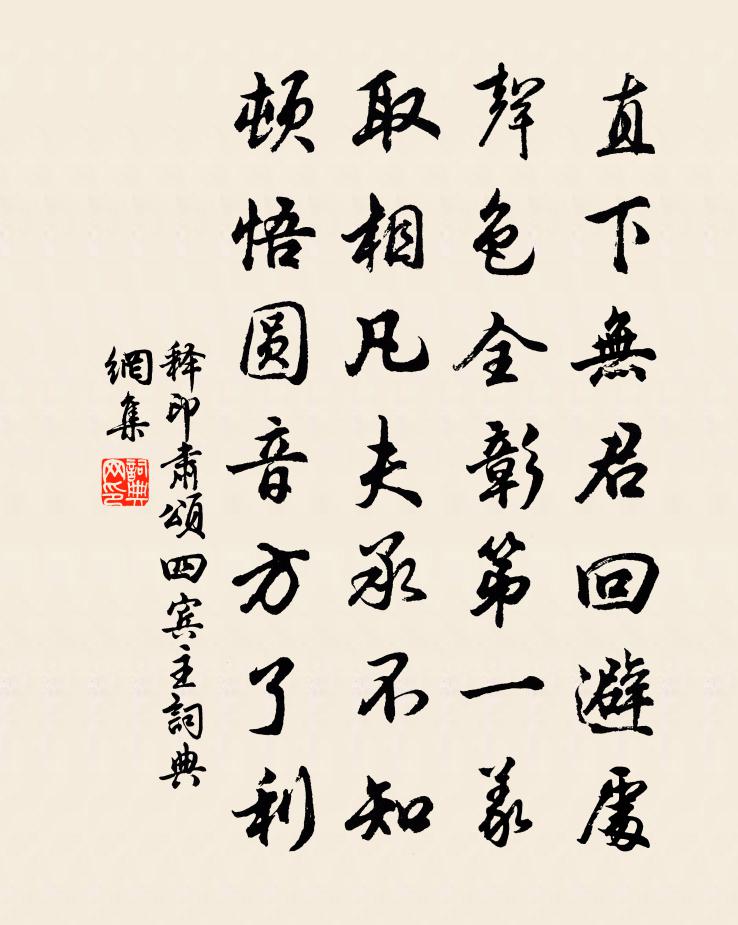 直下無君回避處
聲色全彰第一義
取相凡夫承不知
頓悟圓音方了利
释印肅頌四宾主詞典
網集
詞典
网印